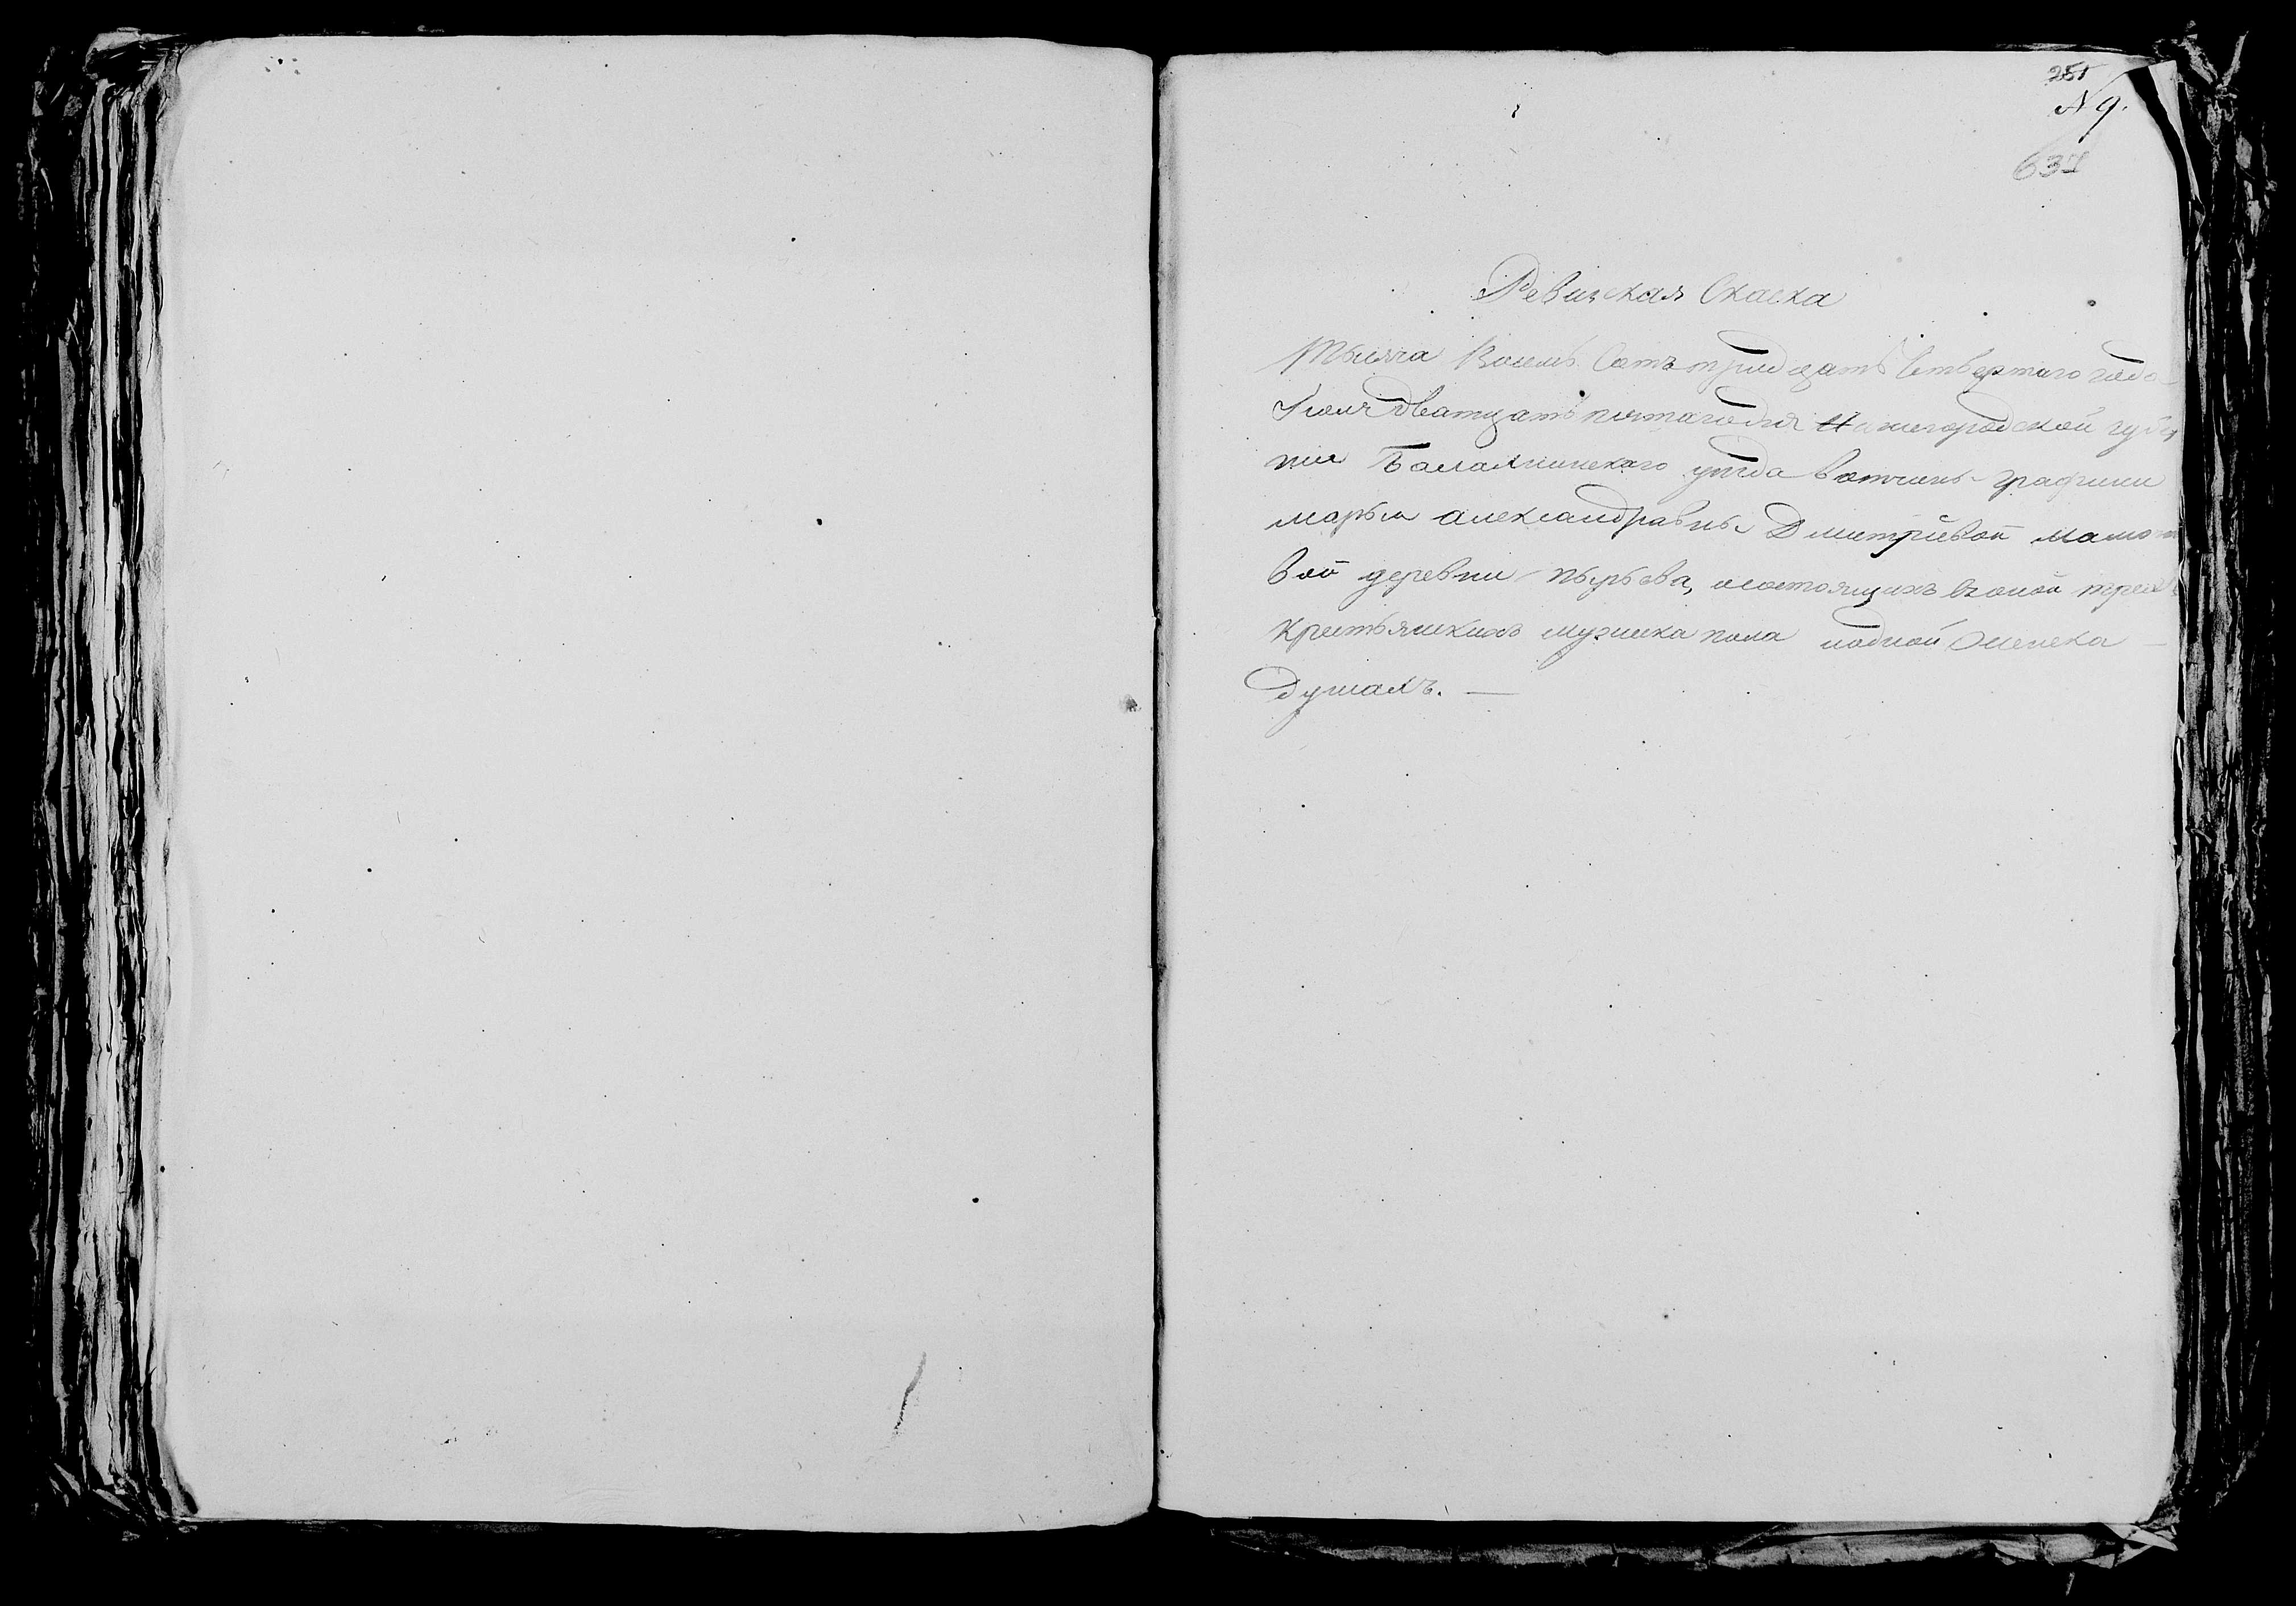 251
N 9.
631
Ревиская Скаска
Тысяча Восемь Сотъ тридцать Четвертаго года
Июля дватцать пятагодня Нижегородской губер
нии Балахнинскаго уезда вотчины графини
марьи александравны Дмитриевой мамоно
вой деревни пырьева, осостоящихъ воной трех
Крестьянкихъ мужиска пола иодной Оженска
душахъ. —